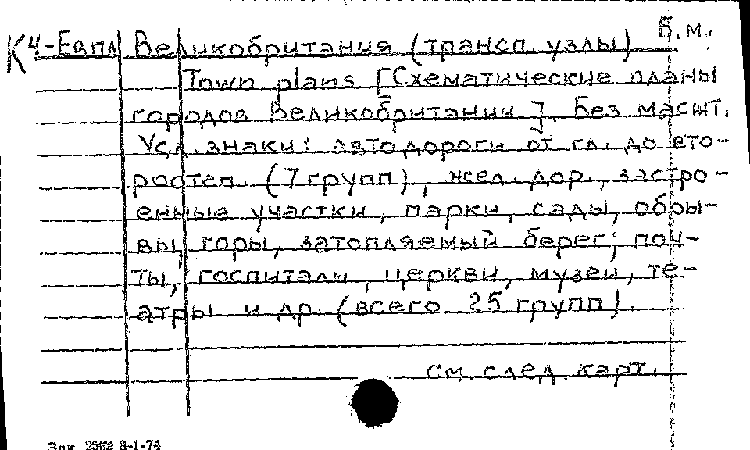 К4-Евпл Великобритания (трансп. узлы) Б.м.
Town plans [Схематические планы
городов Великобритании]. Без масшт.
Усл. знаки: автодороги от гл. до вто-
ростеп. (7 групп), жел. дор., застро-
енные участки, парки, сады, обры-
вы, горы, затопляемый берег; поч-
ты, госпитали, церкви, музеи, те-
атры и др. (всего 25 групп).
см. след. карт.
Зак. 2562 8-1-74